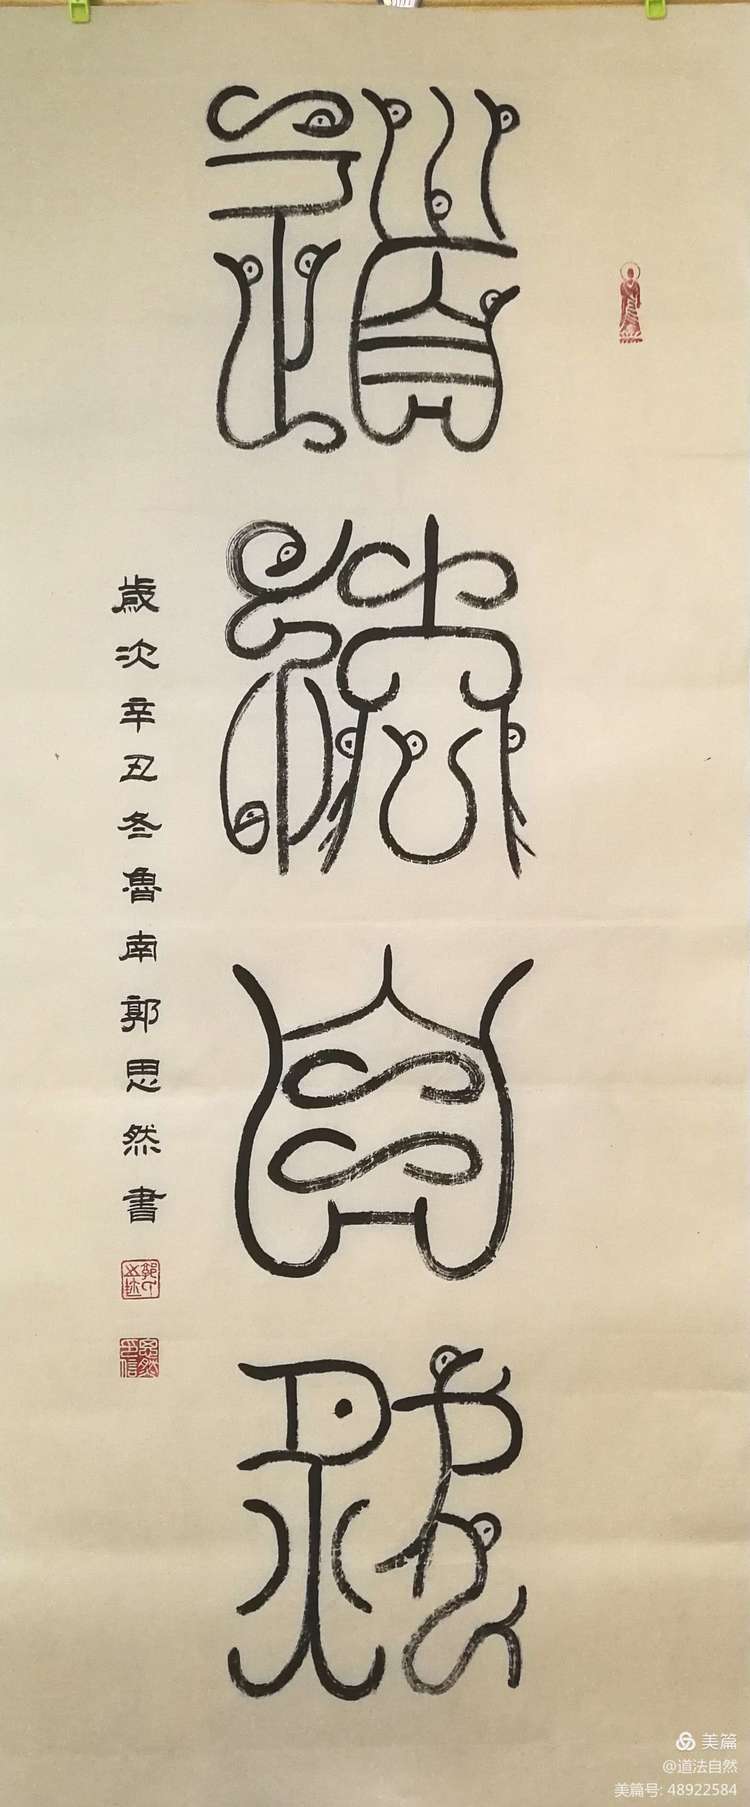 道法自然
歲次辛丑冬魯南郭思然書
美篇
@道法自然
美篇号: 48922584